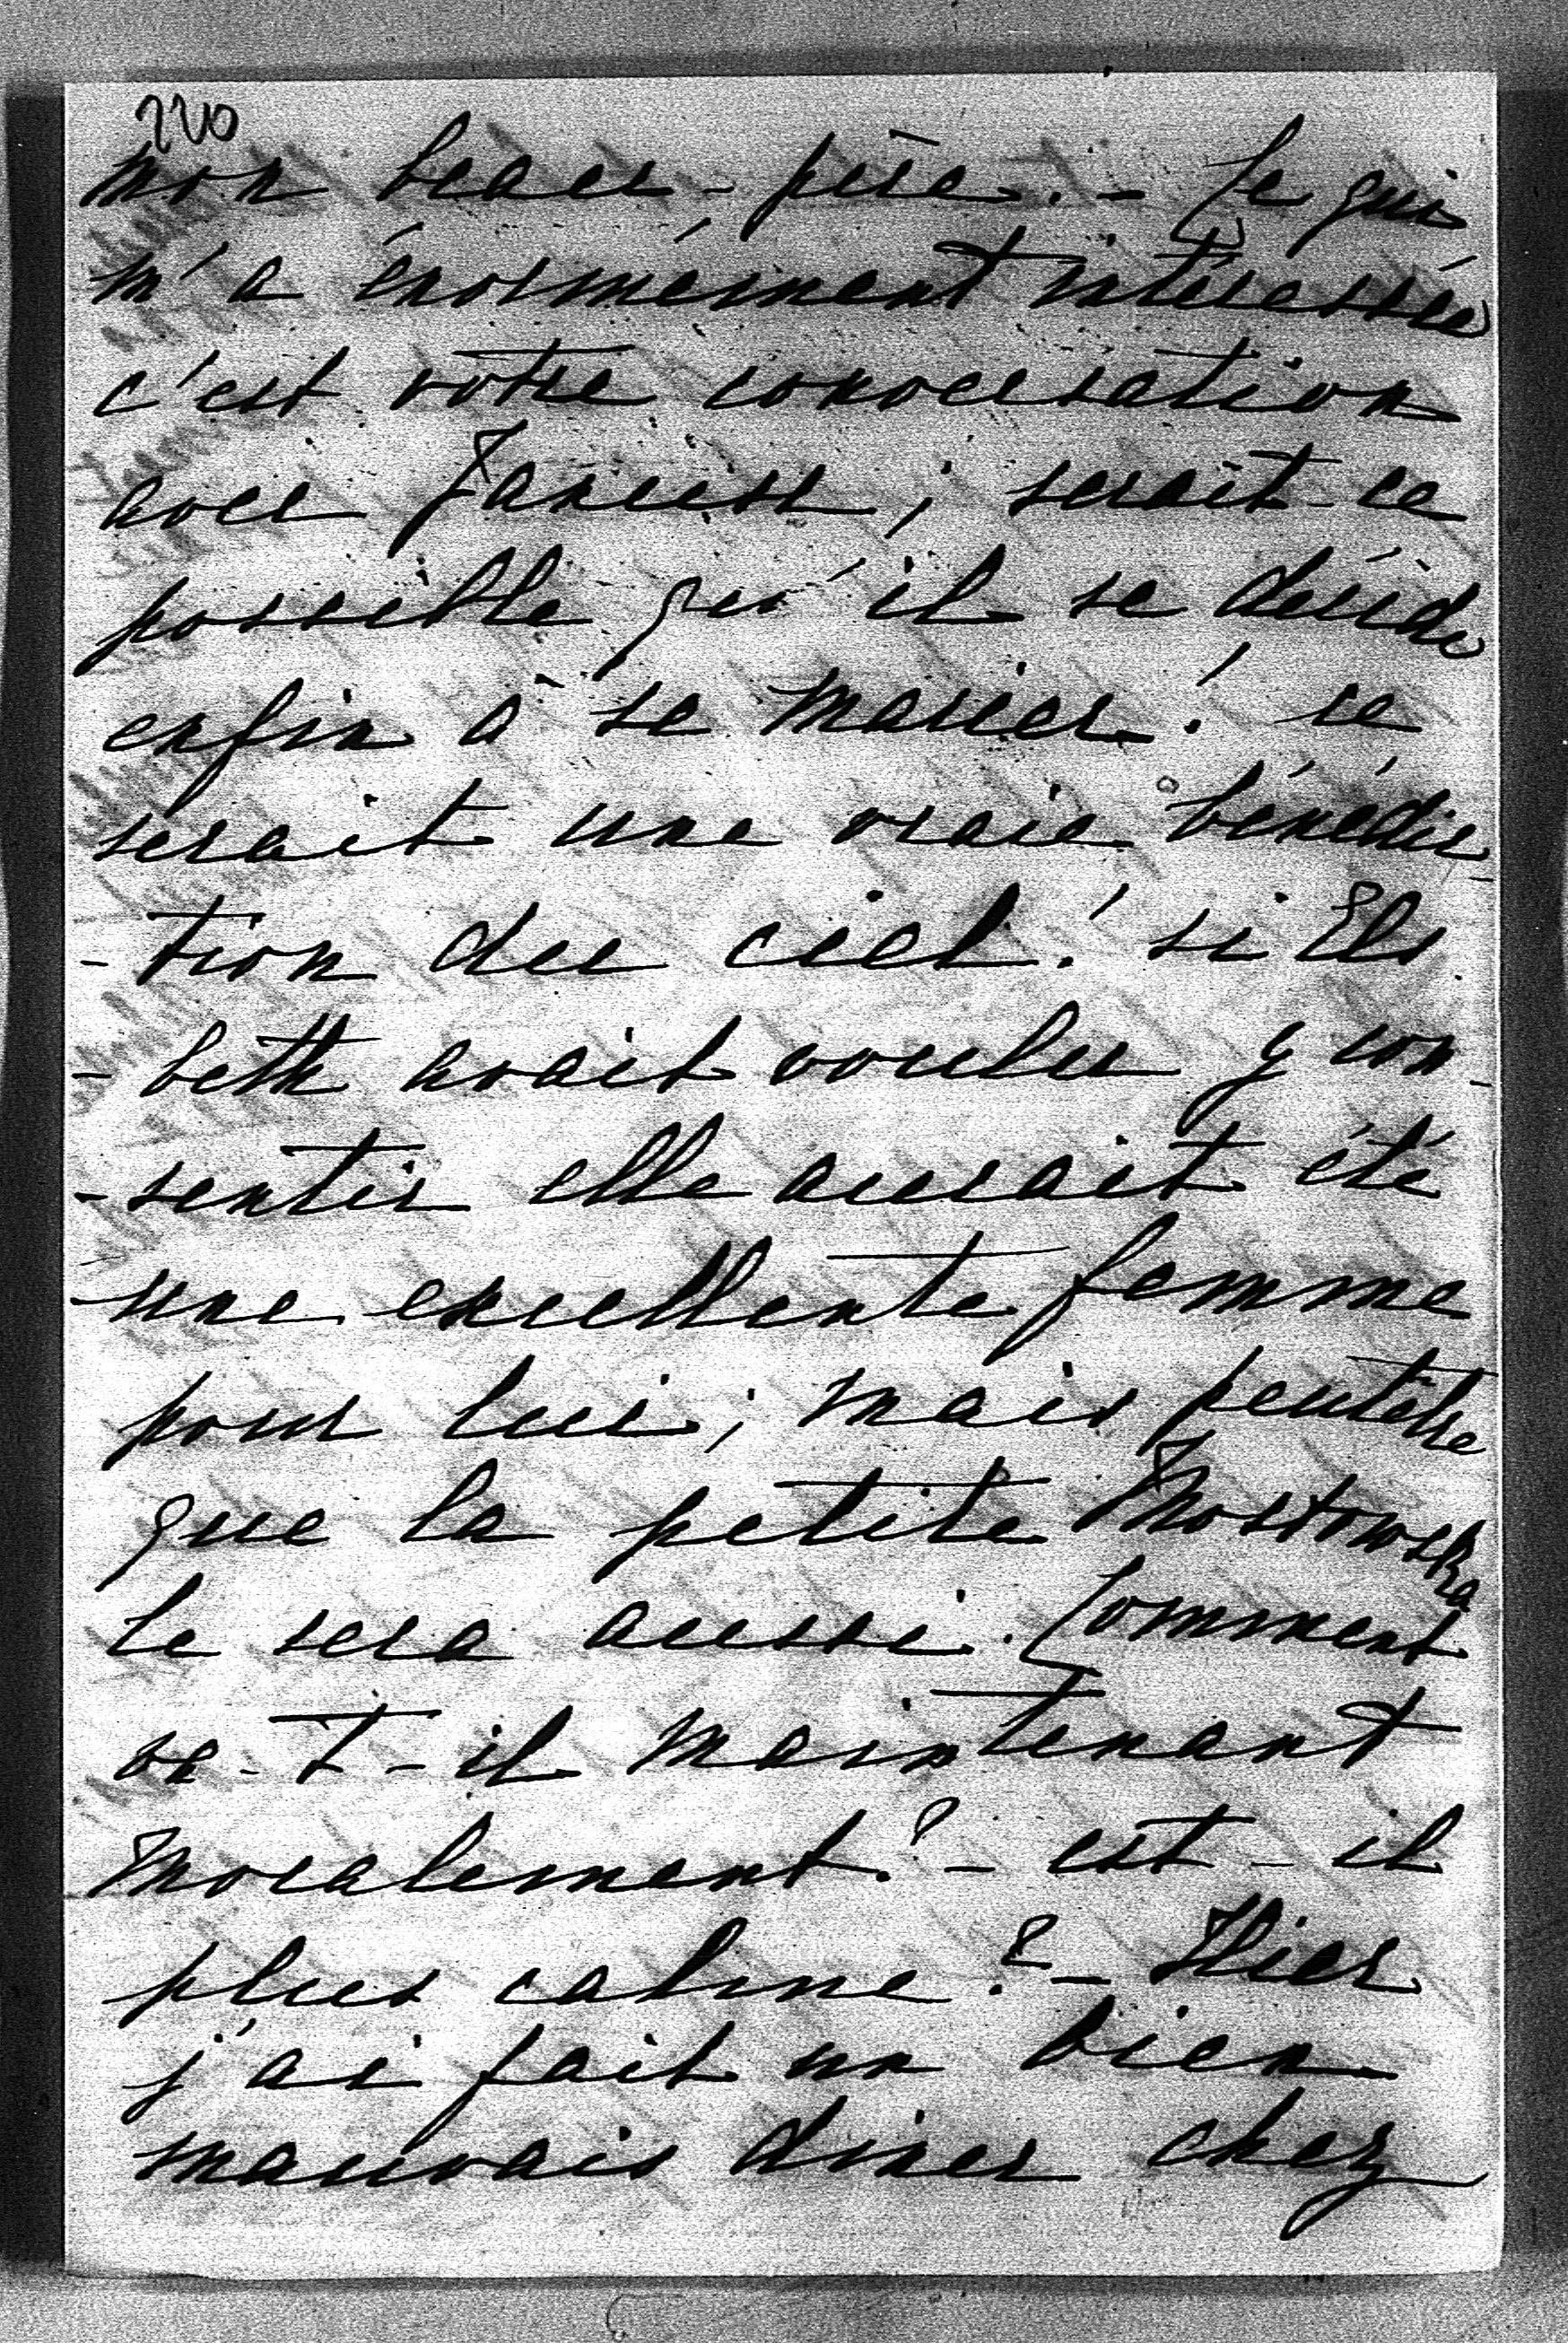 220
mon beau-père. - Ce qui
m'a énormément intéressée
c'est votre conversation
avec Janusz ; serait-ce
possible qu'il se décide
enfin à se marier ! ce
serait une vraie bénédic-
-tion du ciel ! si Els
-beth avait voulu y con-
-sentir elle aurait été
une excellente femme
pour lui ; mais peutêtre
que la petite Mostowska
le sera aussi. Comment
va-t-il maintenant
moralement ? - est-il
plus calme ? - Hier
j'ai fait un bien
mauvais diner chez